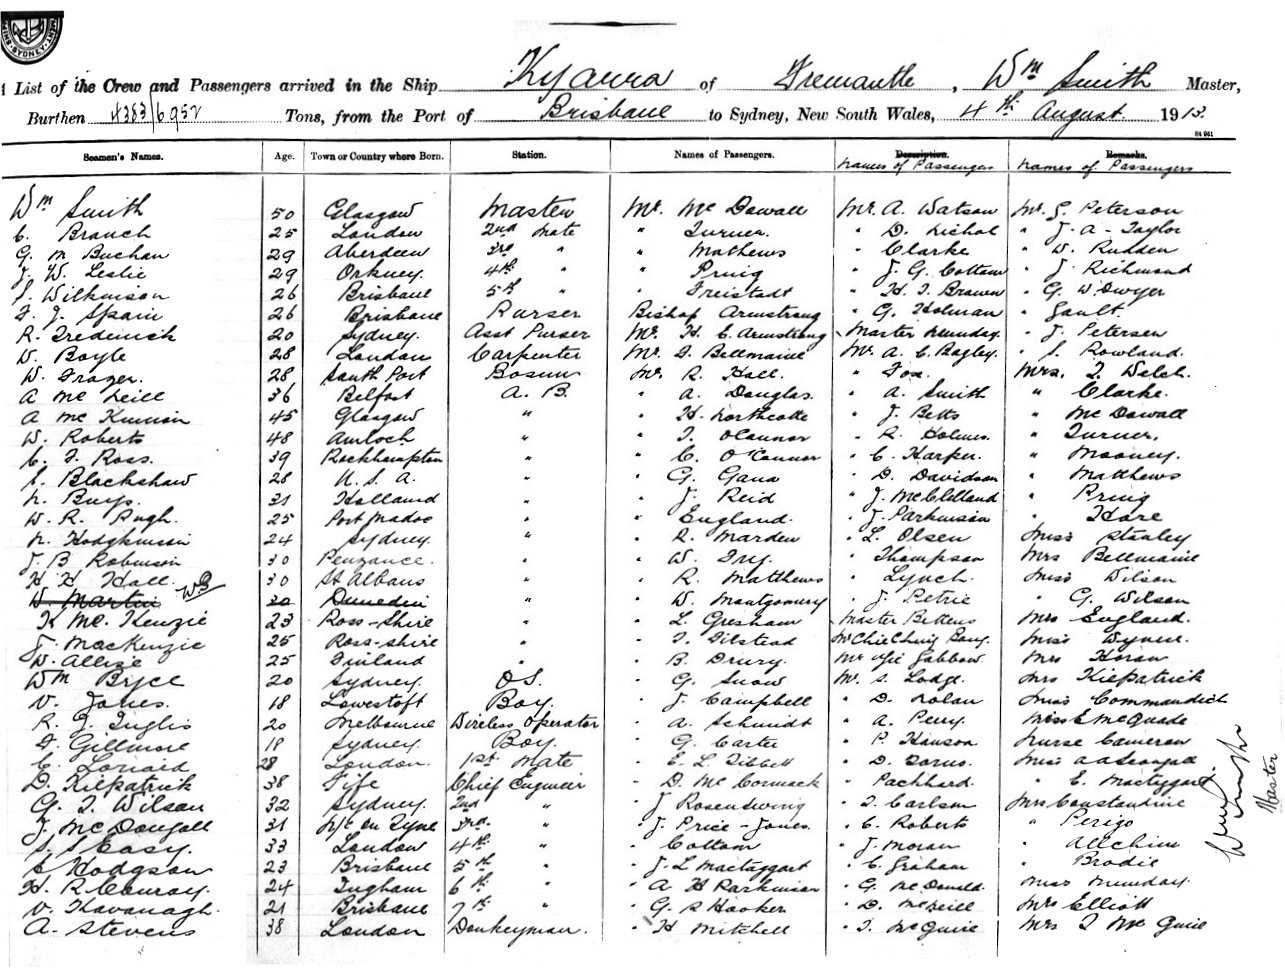 SYDNEY
List of the Crew and Passengers arrived in the Ship Kyarra of Fremantle, Wm Smith Master,
Burthen 4383/6952 Tons, from the Port of Brisbane to Sydney, New South Wales, 4th August 1913.
St 961
Seamen's Names. Age. Town or Country where Born. Station. Names of Passengers. Description. Remarks.
Names of Passengers Names of Passengers
Wm Smith 50 Glasgow Master Mr. Mc Dowall Mr. A. Watson Mr. G. Peterson
C. Branch 25 London 2nd Mate " Turner " D. Nichol " J. A. Taylor
G. M. Buchan 29 Aberdeen 3rd " " Mathews " Clarke " W. Rudden
J. W. Leslie 29 Orkney. 4th " " Pruig " J. G. Cottam " J. Richmond
S. Wilkinson 26 Brisbane 5th " " Freistadt " H. J. Brown " G. W. Dwyer
F. J. Spain 26 Brisbane Purser Bishop Armstrong " G. Holman " Gault.
R. Frederick 20 Sydney. Asst Purser Mr. H. C. Armstrong Master Munday. " J. Petersen
W. Boyle 28 London Carpenter Mr. F. Bellmaine Mr. A. C. Bagley. " S. Rowland.
W. Frazer. 28 South Port Bosun Mr. R. Hall. " Fox. Mrs. T. Welch.
A Mc Neill 36 Belfast A. B. " A. Douglas. " A. Smith " Clarke.
A Mc Kinnon 45 Glasgow " " H. Northcotte " J. Betts " Mc Dowall
W. Roberts 48 Amloch " " T. O'Connor " R. Holmes. " Turner.
C. F. Ross. 39 Rockhampton " " C. O'Connor " C. Harper. " Mooney.
S. Blackshaw 28 U. S. A. " " G. Gana " D. Davidson " Matthews
N. Buys. 31 Holland " " J. Reid " J. McClelland " Pruig
W. R. Pugh. 25 Port Madoc " " England. " J. Parkinson " Hare
N. Hodgkinson 24 Sydney. " " R. Marden " L. Olsen Miss Stanley
J. B. Robinson 30 Penzance. " " W. Fry. " Thompson Mrs Bellmaine
H. H. Hall. 30 St Albans " " R. Matthews " Lynch. Miss Wilson
W. Martin WS 30 Dunedin " " W. Montgomery " J. Petrie " G. Wilson
K Mc. Kenzie 23 Ross-Shire " " L. Gresham Master Bikens Mrs England.
J. MacKenzie 25 Ross-shire " " T. Tilstead Miss Wynn.
W. Allise 25 Finland " " B. Drury. Mrs Horan
Wm Bryce 20 Sydney. O.S. " G. Snow Mr. S. Lodge. Mrs Kilpatrick
V. Jones. 18 Lowestoft Boy. " J. Campbell " D. Nolan Miss
R. J. Inglis 20 Melbourne Wireless Operator " A. Schmidt " A. Perry. Miss E McQuade
F. Gillmore 18 Sydney. Boy. " G. Carter " P. Hanson Nurse Cameron
C. Lonaid 28 London. 1st Mate " E. L. Tibbett " D. Torus. Miss
D. Kilpatrick 38 Fife Chief Engineer " D. Mc Cormack " Packhard. " E. Mactaggart.
G. T. Wilson 32 Sydney. 2nd " " J. Rosenswing " T. Carlson Mrs Constantine
J. McDougall 31 N/c on Tyne 3rd. " " J. Price-Jones. " C. Roberts " Perigo
S. S. Easy. 33 London 4th. " " Cottam " J. Moran " Allchin
C Hodgson 23 Brisbane 5th " " J. L. Mactaggart " C. Graham " Brodie
H. R. Conroy. 24 Ingham 6th. " " A H Parkinson " G. McDonald. Miss Munday.
V. Kavanagh. 21 Brisbane 7th " " G. S Hooker " D. McNeill Mrs Elliott
A. Stevens 38 London Donkeyman. " H Mitchell " T. McGuire Mrs T McGuire
Wm Smith
Master